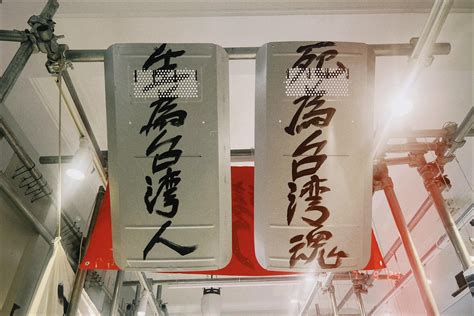 生為台湾人
死為台湾魂